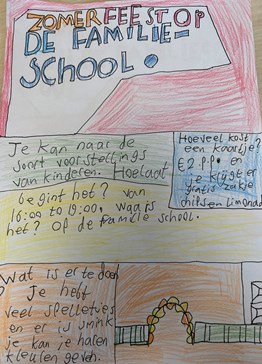 ZOMERFEEST OP
DE FAMILIE-
SCHOOL.
Je kan naar de
soort voorstellings
van kinderen. Hoelaat
begint het? van
16:00 to 19:00. waar is
het? Op de familie school.
Hoeveel kost
een kaartje?
€2 p.p. en
je krijgt er
gratis zakje
chips en limonade
Wat is er te doen
Je heft
veel spelletjes
en er is smink
je kan je haren
kleuren geven.